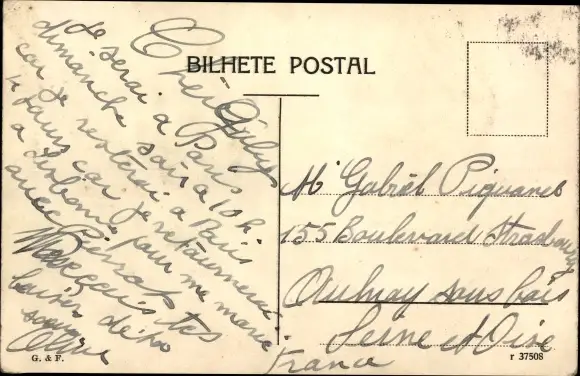 BILHETE POSTAL
Chère Gaby
Je serai à Paris
dimanche soir à 10 h.
car je resterai à Paris
4 jours car je retournerai
à Lisbonne pour me marié
avec
baisers de ta
soeur
M' Gabriel Piquanet
155 Boulevard Strasbourg
Aulnay sous bois
Seine et Oise
France
G. & F.
r 37508